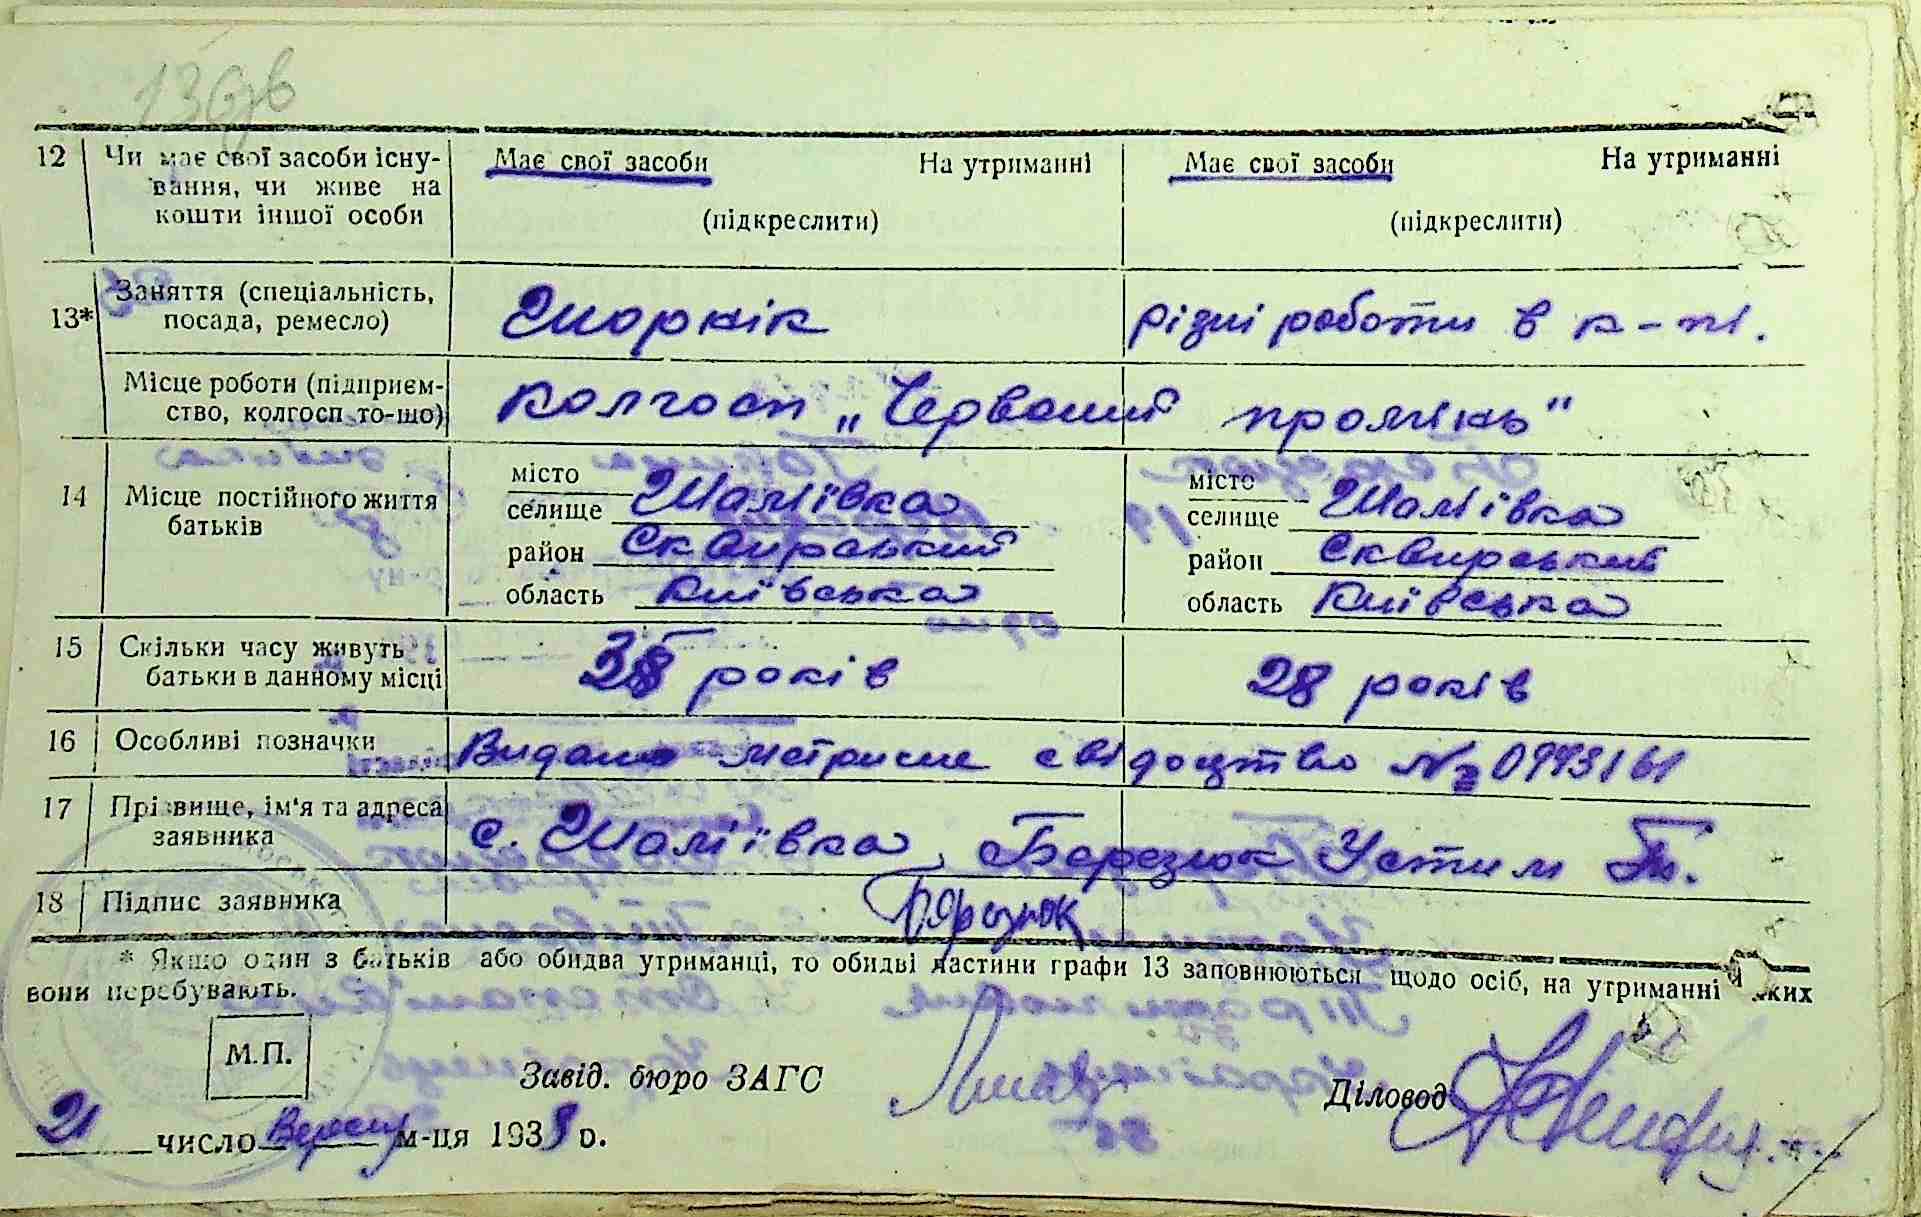 136зв
12 Чи має свої засоби існу- Має свої засоби На утриманні Має свої засоби На утриманні
вання, чи живе на
кошти іншої особи (підкреслити) (підкреслити)
13* Заняття (спеціальність,
посада, ремесло) різні роботи в к-пі.
Місце роботи (підприєм-
ство, колгосп то-що) Колгосп „Червоний промінь"
14 Місце постійного життя
батьків
місто
селище Шаліївка
район Сквирський
область Київська
місто
селище Шаліївка
район Сквирський
область Київська
15 Скільки часу живуть
батьки в данному місці років 28 років
16 Особливі позначки Видано метричне свідоцтво № 0993161
17 Прізвище, ім'я та адреса
заявника с. Шаліївка, Березюк Устим
18 Підпис заявника Березюк
* Якщо один з батьків або обидва утриманці, то обидві частини графи 13 заповнюються щодо осіб, на утриманні яких
вони перебувають.
М.П.
Завід. бюро ЗАГС Діловод
21 число Вересня м-ця 1938 р.